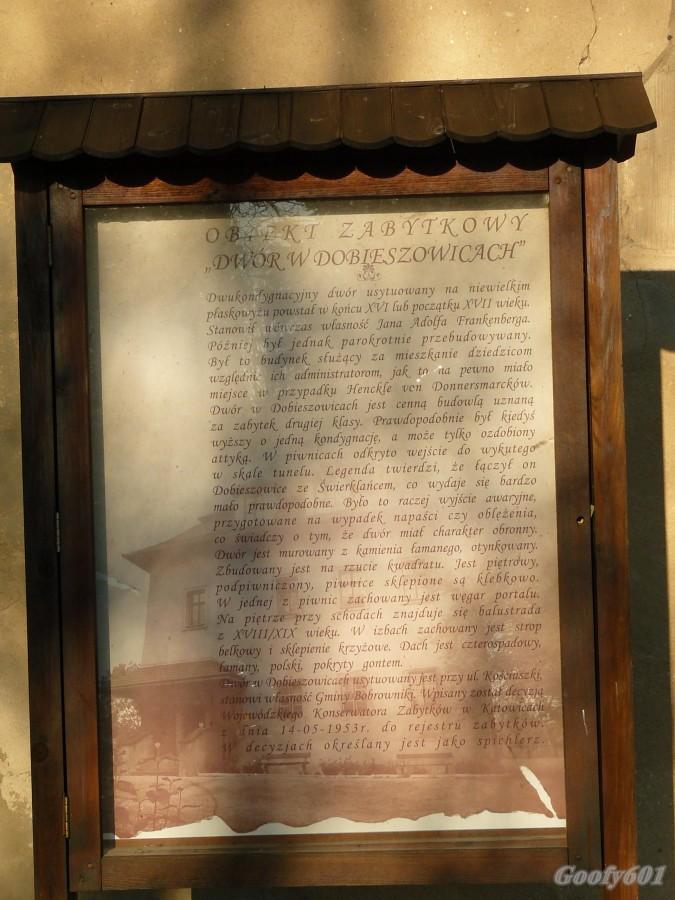 OBIEKT ZABYTKOWY
„DWÓR W DOBIESZOWICACH”
Dwukondygnacyjny dwór usytuowany na niewielkim
płaskowyżu powstał w końcu XVI lub początku XVII wieku.
Stanowił wówczas własność Jana Adolfa Frankenberga.
Później był jednak parokrotnie przebudowywany.
Był to budynek służący za mieszkanie dziedzicom
względnie ich administratorom, jak to na pewno miało
miejsce w przypadku Henckle von Donnersmarcków.
Dwór w Dobieszowicach jest cenną budowlą uznaną
za zabytek drugiej klasy. Prawdopodobnie był kiedyś
wyższy o jedną kondygnację, a może tylko ozdobiony
attyką. W piwnicach odkryto wejście do wykutego
w skale tunelu. Legenda twierdzi, że łączył on
Dobieszowice ze Świerklańcem, co wydaje się bardzo
mało prawdopodobne. Było to raczej wyjście awaryjne,
przygotowane na wypadek napaści czy oblężenia,
co świadczy o tym, że dwór miał charakter obronny.
Dwór jest murowany z kamienia łamanego, otynkowany.
Zbudowany jest na rzucie kwadratu. Jest piętrowy,
podpiwniczony, piwnice sklepione są kolebkowo.
W jednej z piwnic zachowany jest węgar portalu.
Na piętrze przy schodach znajduje się balustrada
z XVIII/XIX wieku. W izbach zachowany jest strop
belkowy i sklepienie krzyżowe. Dach jest czterospadowy,
łamany, polski, pokryty gontem.
Dwór w Dobieszowicach usytuowany jest przy ul. Kościuszki,
stanowi własność Gminy Bobrowniki. Wpisany został decyzją
Wojewódzkiego Konserwatora Zabytków w Katowicach
z dnia 14-05-1953r. do rejestru zabytków.
W decyzjach określany jest jako spichlerz.
Goofy601